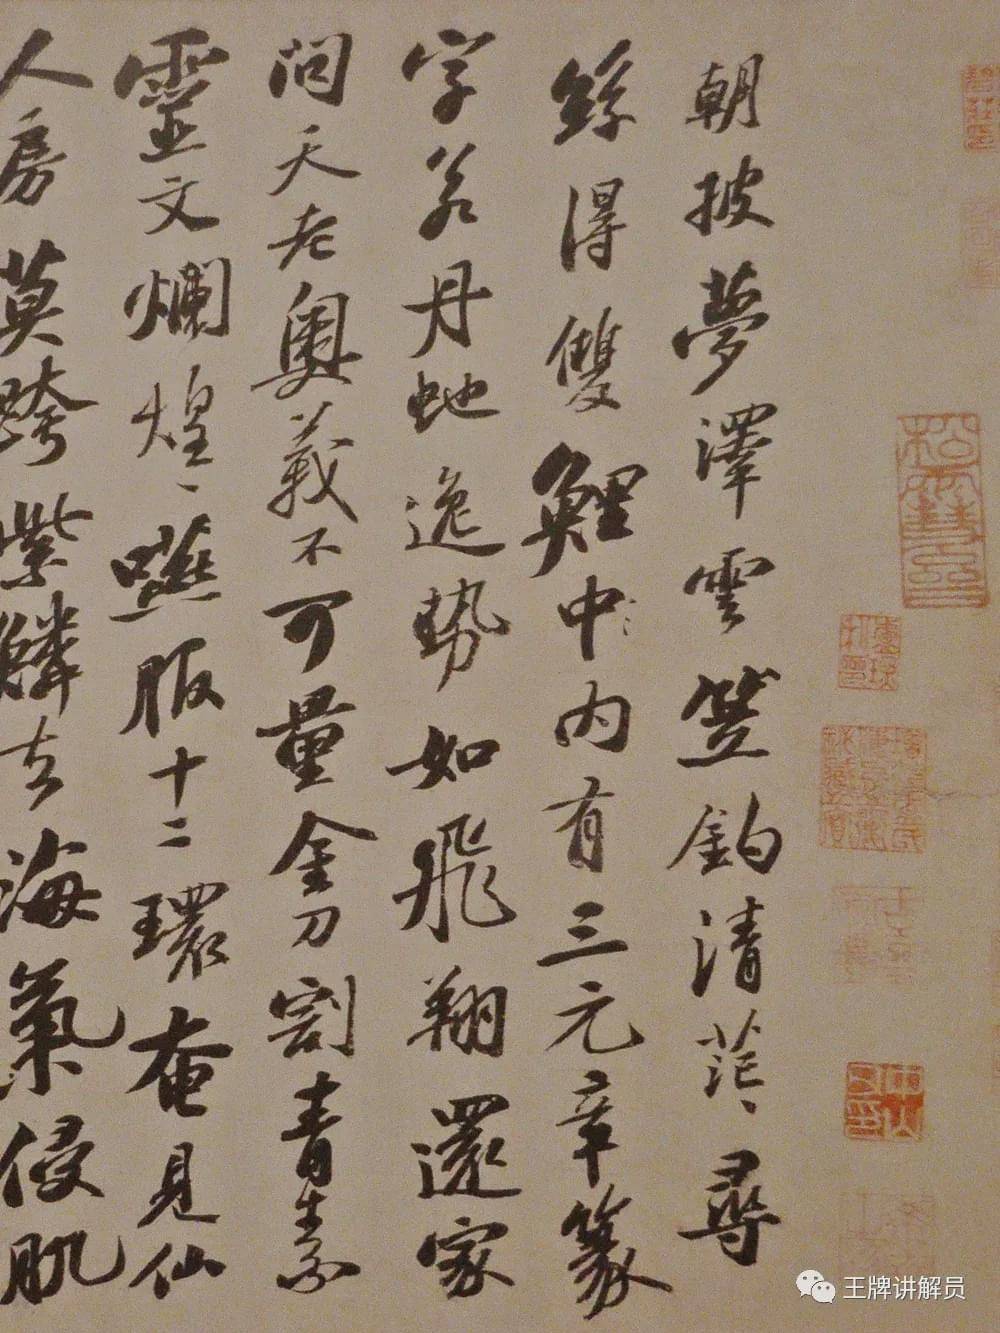 朝披夢澤雲笠釣清茫〻尋
絲得雙鯉中內有三元章篆
字若丹虵逸勢如飛翔還家
問天老奧義不可量金刀割青素
靈文爛煌〻嚥服十二環奄見仙
人房莫跨紫鱗去海氣侵肌
王牌讲解员